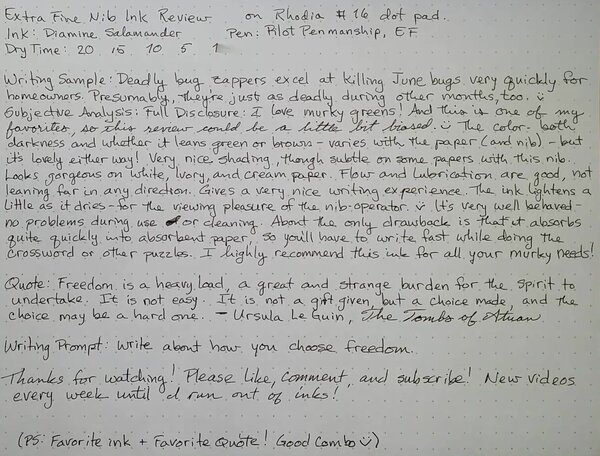 Extra Fine Nib Ink Review on Rhodia #16 dot pad.
Ink: Diamine Salamander Pen: Pilot Penmanship, EF
Dry Time: 20 15 10 5 1
Writing Sample: Deadly bug zappers excel at killing June bugs very quickly for
homeowners. Presumably, they're just as deadly during other months, too. :)
Subjective Analysis: Full Disclosure: I love murky greens! And this is one of my
favorites, so this review could be a little bit biased. :) The color - both
darkness and whether it leans green or brown - varies with the paper (and nib) - but
it's lovely either way! Very nice shading, though subtle on some papers with this nib.
Looks gorgeous on white, ivory, and cream paper. Flow and lubrication are good, not
leaning far in any direction. Gives a very nice writing experience. The ink lightens a
little as it dries - for the viewing pleasure of the nib-operator. :) It's very well behaved -
no problems during use or cleaning. About the only drawback is that it absorbs
quite quickly into absorbent paper, so you'll have to write fast while doing the
crossword or other puzzles. I highly recommend this ink for all your murky needs!
Quote: Freedom is a heavy load, a great and strange burden for the spirit to
undertake. It is not easy. It is not a gift given, but a choice made, and the
choice may be a hard one. - Ursula Le Guin, The Tombs of Atuan
Writing Prompt: Write about how you choose freedom.
Thanks for watching! Please like, comment, and subscribe! New videos
every week until I run out of inks!
(PS: Favorite ink + Favorite Quote! Good Combo :))